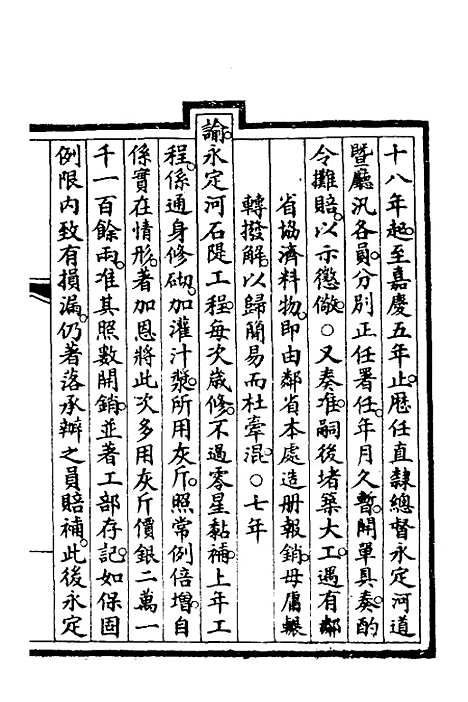 十八年起。至嘉慶五年止。歷任直隸總督永定河道
暨廳汛各員。分別正任署任。年月久暫。開單具奏。酌
令攤賠。以示懲儆。○又奏准。嗣後堵築大工。遇有鄰
省協濟料物。即由鄰省本處造册報銷。毋庸輾
轉撥解。以歸簡易而杜牽混。○七年
諭。永定河石隄工程。每次歲修。不過零星黏補。上年工
程。係通身修砌。加灌汁漿。所用灰斤。照常例倍增。自
係實在情形。著加恩將此次多用灰斤價銀二萬一
千一百餘兩。准其照數開銷。並著工部存記。如保固
例限內致有損漏。仍著落承辦之員賠補。此後永定